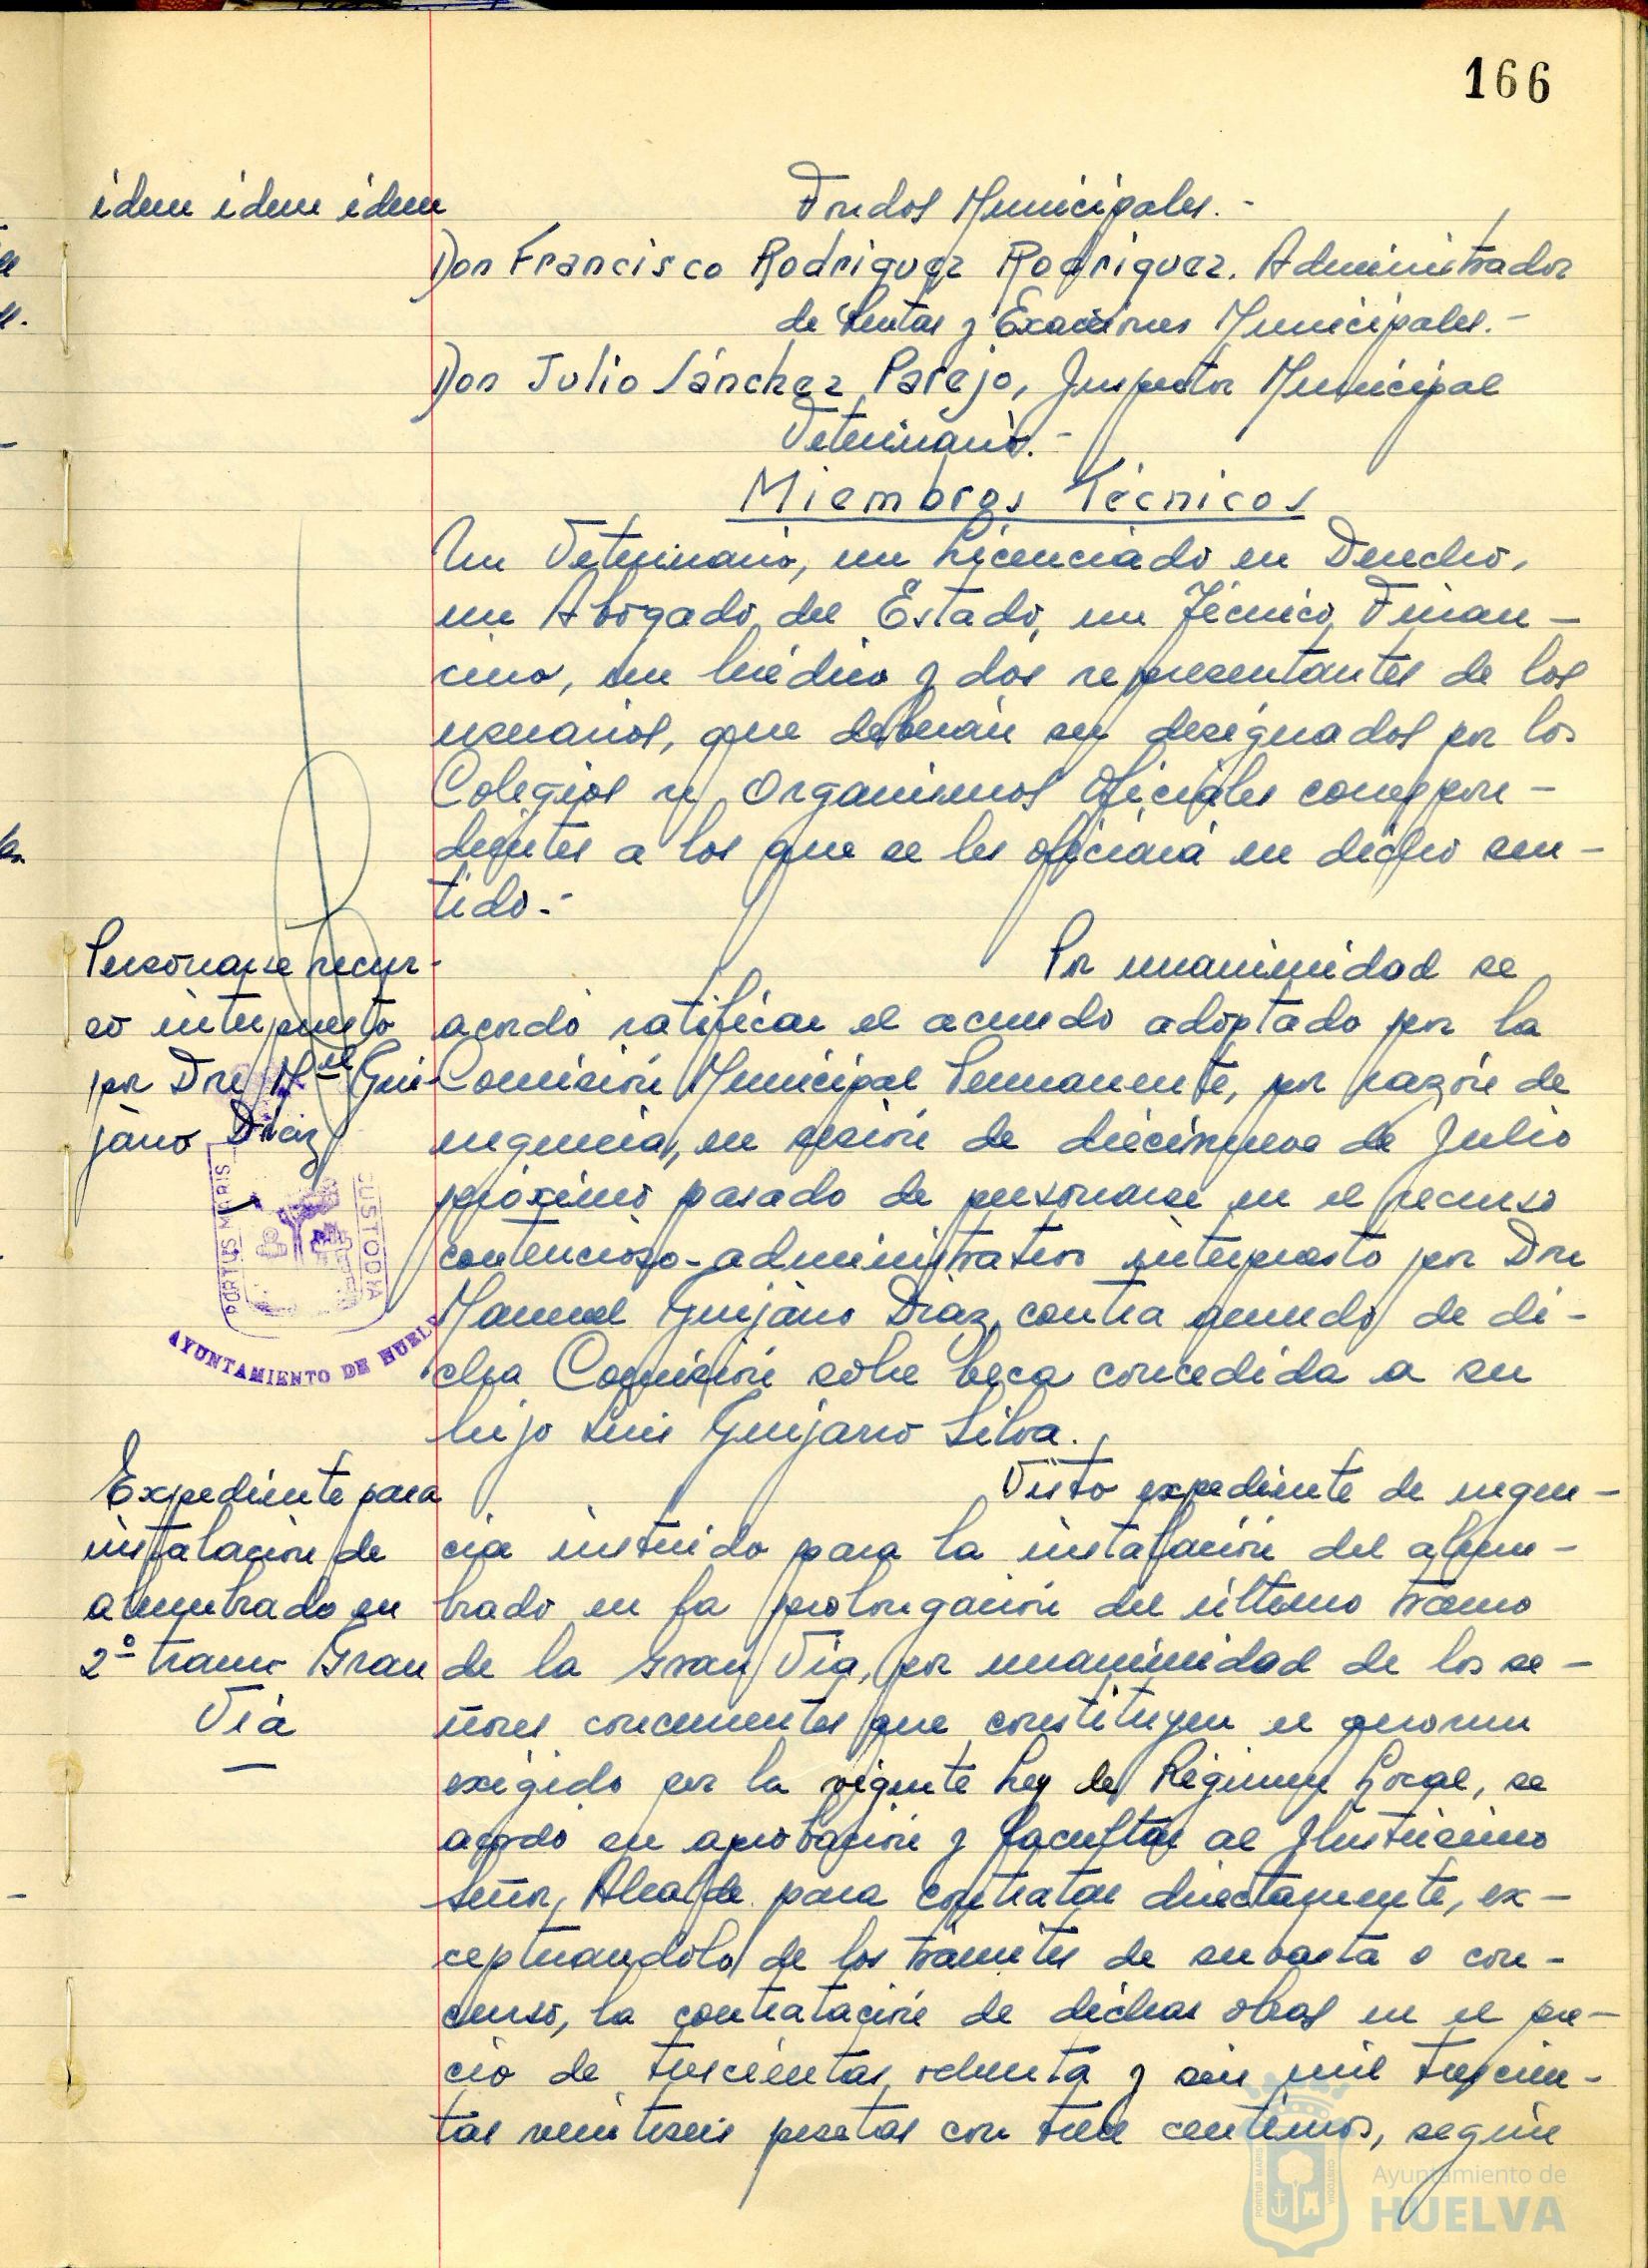 166
idem idem idem
Fondos Municipales.-
Don Francisco Rodriguez Rodriguez. Administrador
de Rentas y Exacciones Municipales.-
Don Julio Sánchez Parejo, Inspector Municipal
Veterinario.-
Miembros Técnicos
Un Veterinario, un Licenciado en Derecho,
un Abogado del Estado, un Técnico Finan-
ciero, un Médico y dos representantes de los
usuarios, que deberán ser designados por los
Colegios u Organismos Oficiales correspon-
dientes a los que se les oficiará en dicho sen-
tido.-
Personarse recur-
so interpuesto
por Don M-el Gui-
jarro Díaz
Por unanimidad se
acordó ratificar el acuerdo adoptado por la
Comisión Municipal Permanente, por razón de
urgencia, en sesión de diecinueve de Julio
próximo pasado de personarse en el recurso
contencioso-administrativo interpuesto por Don
Manuel Guijarro Díaz, contra acuerdo de di-
cha Comisión sobre beca concedida a su
hijo Luis Guijarro Silva.
PORTUS MARIS
CUSTODIA
AYUNTAMIENTO DE HUELV
Expediente para
instalación de
alumbrado en
2º tramo Gran
Vía
Visto expediente de urgen-
cia instruido para la instalación del alum-
brado en la prolongación del último tramo
de la Gran Vía, por unanimidad de los se-
ñores concurrentes que constituyen el quorum
exigido por la vigente Ley de Régimen Local, se
acordó su aprobación y facultar al Ilustrísimo
Señor Alcalde para contratar directamente, ex-
ceptuandolo de los trámites de subasta o con-
curso, la contratación de dichas obras en el pre-
cio de trescientas ochenta y seis mil trescien-
tas veintiseis pesetas con trece centimos, según
Ayuntamiento de
HUELVA